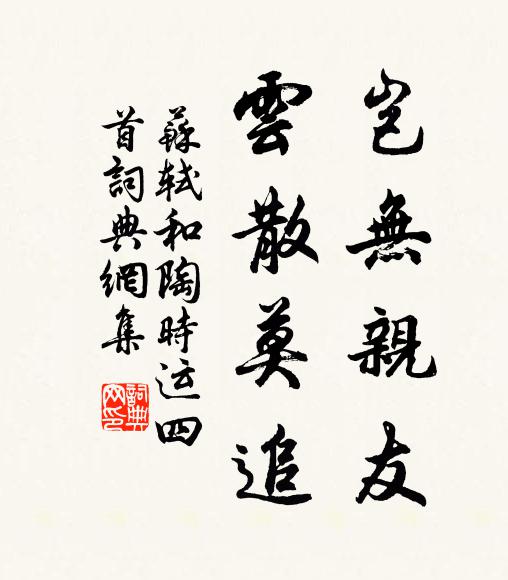 豈無親友
雲散莫追
蘇軾和陶時运四
首詞典網集
詞典
网印